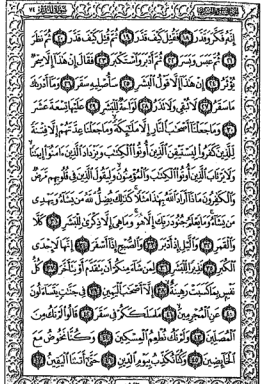 الجزء التاسع والعشرون سورة المدثر ٧٤
إِنَّهُۥ فَكَّرَ وَقَدَّرَ ١٨ فَقُتِلَ كَيْفَ قَدَّرَ ١٩ ثُمَّ قُتِلَ كَيْفَ قَدَّرَ ٢٠ ثُمَّ نَظَرَ
٢١ ثُمَّ عَبَسَ وَبَسَرَ ٢٢ ثُمَّ أَدْبَرَ وَٱسْتَكْبَرَ ٢٣ فَقَالَ إِنْ هَٰذَآ إِلَّا سِحْرٌ
يُؤْثَرُ ٢٤ إِنْ هَٰذَآ إِلَّا قَوْلُ ٱلْبَشَرِ ٢٥ سَأُصْلِيهِ سَقَرَ ٢٦ وَمَآ أَدْرَىٰكَ
مَا سَقَرُ ٢٧ لَا تُبْقِى وَلَا تَذَرُ ٢٨ لَوَّاحَةٌ لِّلْبَشَرِ ٢٩ عَلَيْهَا تِسْعَةَ عَشَرَ
٣٠ وَمَا جَعَلْنَآ أَصْحَٰبَ ٱلنَّارِ إِلَّا مَلَٰٓئِكَةً وَمَا جَعَلْنَا عِدَّتَهُمْ إِلَّا فِتْنَةً
لِّلَّذِينَ كَفَرُوا۟ لِيَسْتَيْقِنَ ٱلَّذِينَ أُوتُوا۟ ٱلْكِتَٰبَ وَيَزْدَادَ ٱلَّذِينَ ءَامَنُوٓا۟ إِيمَٰنًا
وَلَا يَرْتَابَ ٱلَّذِينَ أُوتُوا۟ ٱلْكِتَٰبَ وَٱلْمُؤْمِنُونَ وَلِيَقُولَ ٱلَّذِينَ فِى قُلُوبِهِم مَّرَضٌ
وَٱلْكَٰفِرُونَ مَاذَآ أَرَادَ ٱللَّهُ بِهَٰذَا مَثَلًا كَذَٰلِكَ يُضِلُّ ٱللَّهُ مَن يَشَآءُ وَيَهْدِى
مَن يَشَآءُ وَمَا يَعْلَمُ جُنُودَ رَبِّكَ إِلَّا هُوَ وَمَا هِىَ إِلَّا ذِكْرَىٰ لِلْبَشَرِ ٣١ كَلَّا
وَٱلْقَمَرِ ٣٢ وَٱلَّيْلِ إِذْ أَدْبَرَ ٣٣ وَٱلصُّبْحِ إِذَآ أَسْفَرَ ٣٤ إِنَّهَا لَإِحْدَى
ٱلْكُبَرِ ٣٥ نَذِيرًا لِّلْبَشَرِ ٣٦ لِمَن شَآءَ مِنكُمْ أَن يَتَقَدَّمَ أَوْ يَتَأَخَّرَ ٣٧ كُلُّ
نَفْسٍۭ بِمَا كَسَبَتْ رَهِينَةٌ ٣٨ إِلَّآ أَصْحَٰبَ ٱلْيَمِينِ ٣٩ فِى جَنَّٰتٍ يَتَسَآءَلُونَ
٤٠ عَنِ ٱلْمُجْرِمِينَ ٤١ مَا سَلَكَكُمْ فِى سَقَرَ ٤٢ قَالُوا۟ لَمْ نَكُ مِنَ
ٱلْمُصَلِّينَ ٤٣ وَلَمْ نَكُ نُطْعِمُ ٱلْمِسْكِينَ ٤٤ وَكُنَّا نَخُوضُ مَعَ
ٱلْخَآئِضِينَ ٤٥ وَكُنَّا نُكَذِّبُ بِيَوْمِ ٱلدِّينِ ٤٦ حَتَّىٰٓ أَتَىٰنَا ٱلْيَقِينُ ٤٧